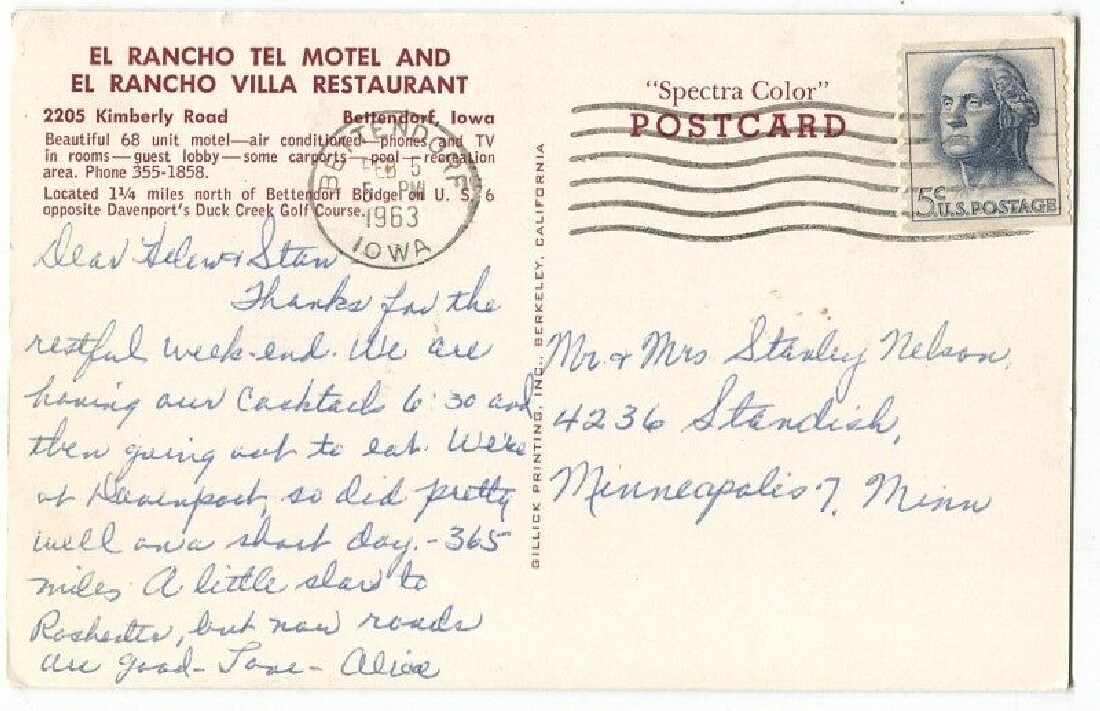 EL RANCHO TEL MOTEL AND
EL RANCHO VILLA RESTAURANT
2205 Kimberly Road Bettendorf, Iowa
Beautiful 68 unit motel—air conditioned—phones and TV
in rooms—guest lobby—some carports—pool—recreation
area. Phone 355-1858.
Located 1¼ miles north of Bettendorf Bridge on U. S. 6
opposite Davenport's Duck Creek Golf Course.
BETTENDORF
FEB 5
5 PM
1963
IOWA
Dear Helen & Stan
Thanks for the
restful week-end. We are
having our Cocktails 6:30 and
then going out to eat. We're
at Davenport, so did pretty
well on a short day. - 365
miles. A little slow to
Rochester, but now roads
are good - Love - Alice
GILLICK PRINTING, INC., BERKELEY, CALIFORNIA
"Spectra Color"
POSTCARD
5¢ U.S. POSTAGE
Mr. & Mrs Stanley Nelson,
4236 Standish,
Minneapolis 7, Minn